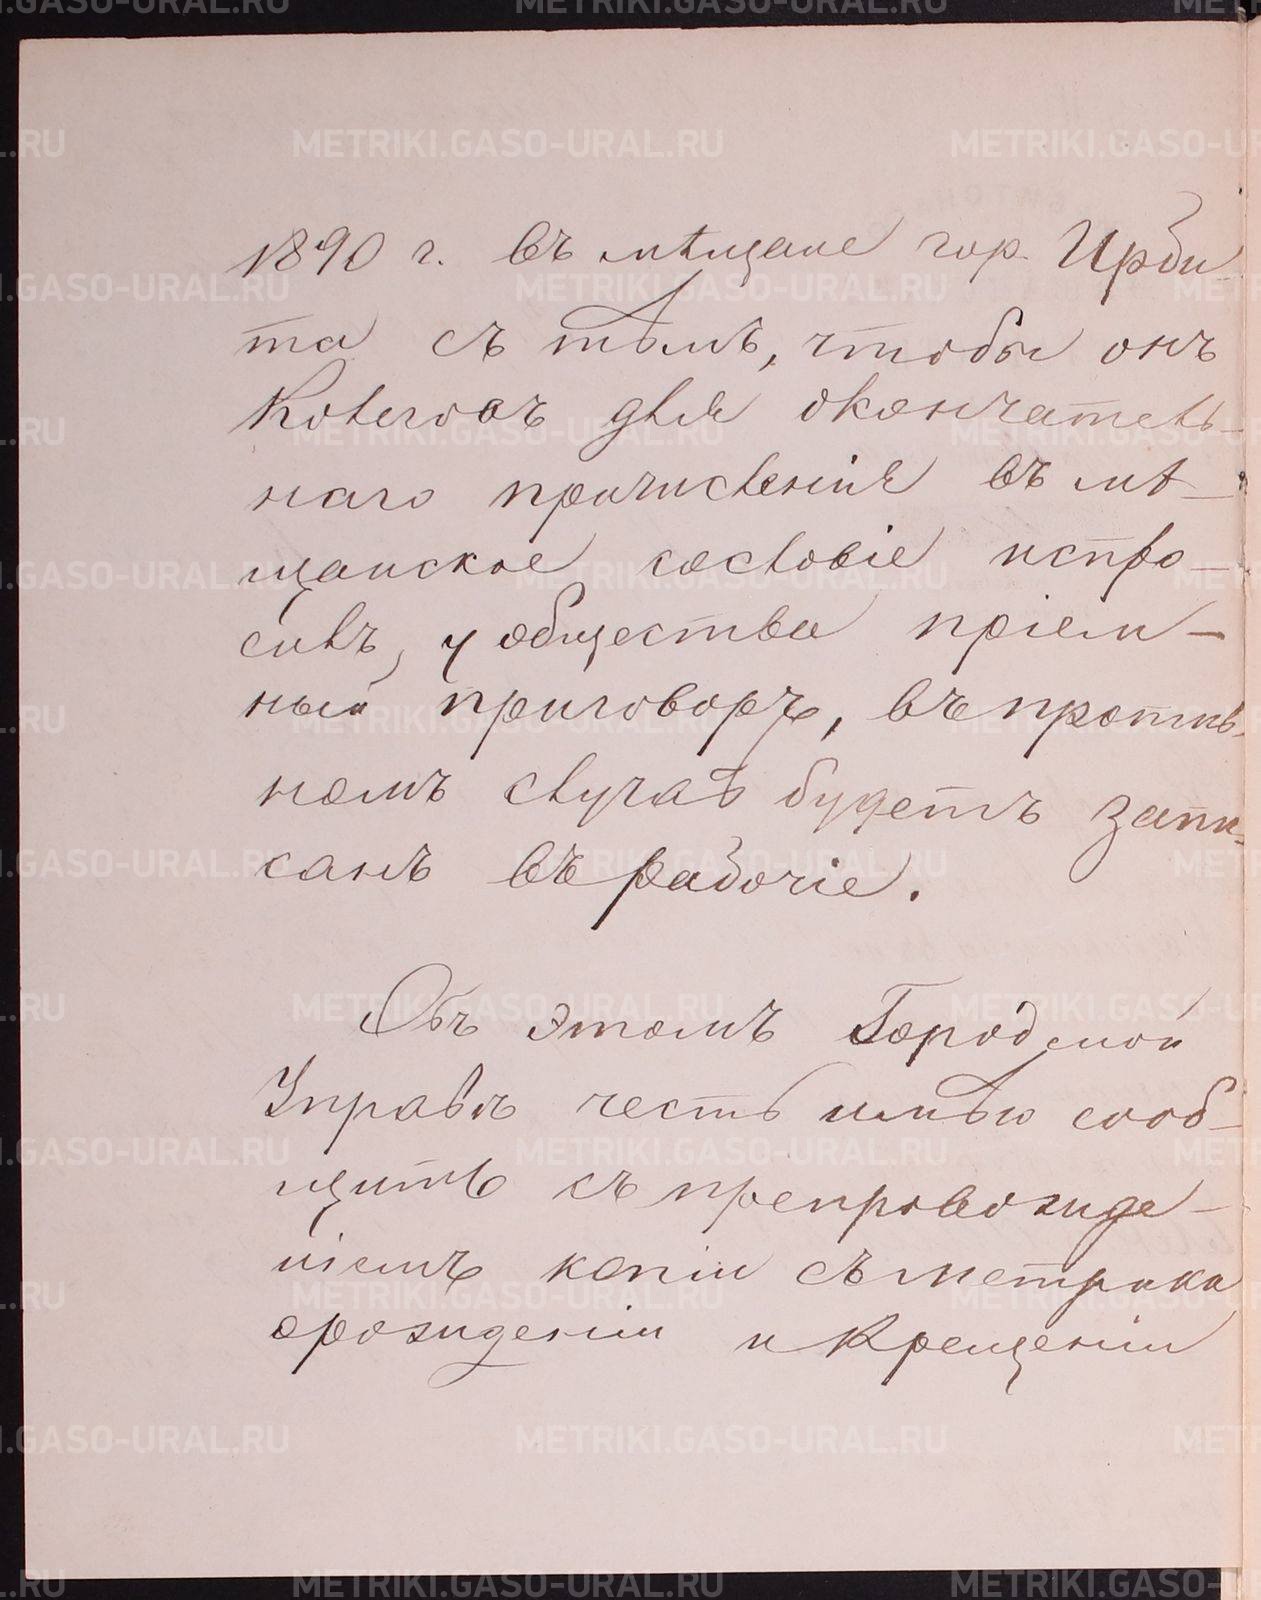 1890 г. въ мѣщане гор. Ирби
та съ тѣмъ, чтобы онъ
Колеговъ для окончатель-
наго причисленія въ мѣ-
щанское сословіе испро-
силъ у общества пріем-
ный приговоръ, въ против-
номъ случаѣ будетъ запи-
санъ въ рабочіе.
Объ этомъ Городской
Управѣ честь имѣю сооб-
щить съ препровожде-
ніемъ копіи съ метрики
о рожденіи и крещеніи
METRIKI.GASO-URAL.RU